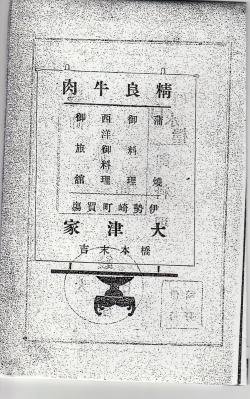 精良牛肉
蒲焼
御料理
西洋御料理
御旅舘
伊勢崎町賣場
大津家
橋本末吉